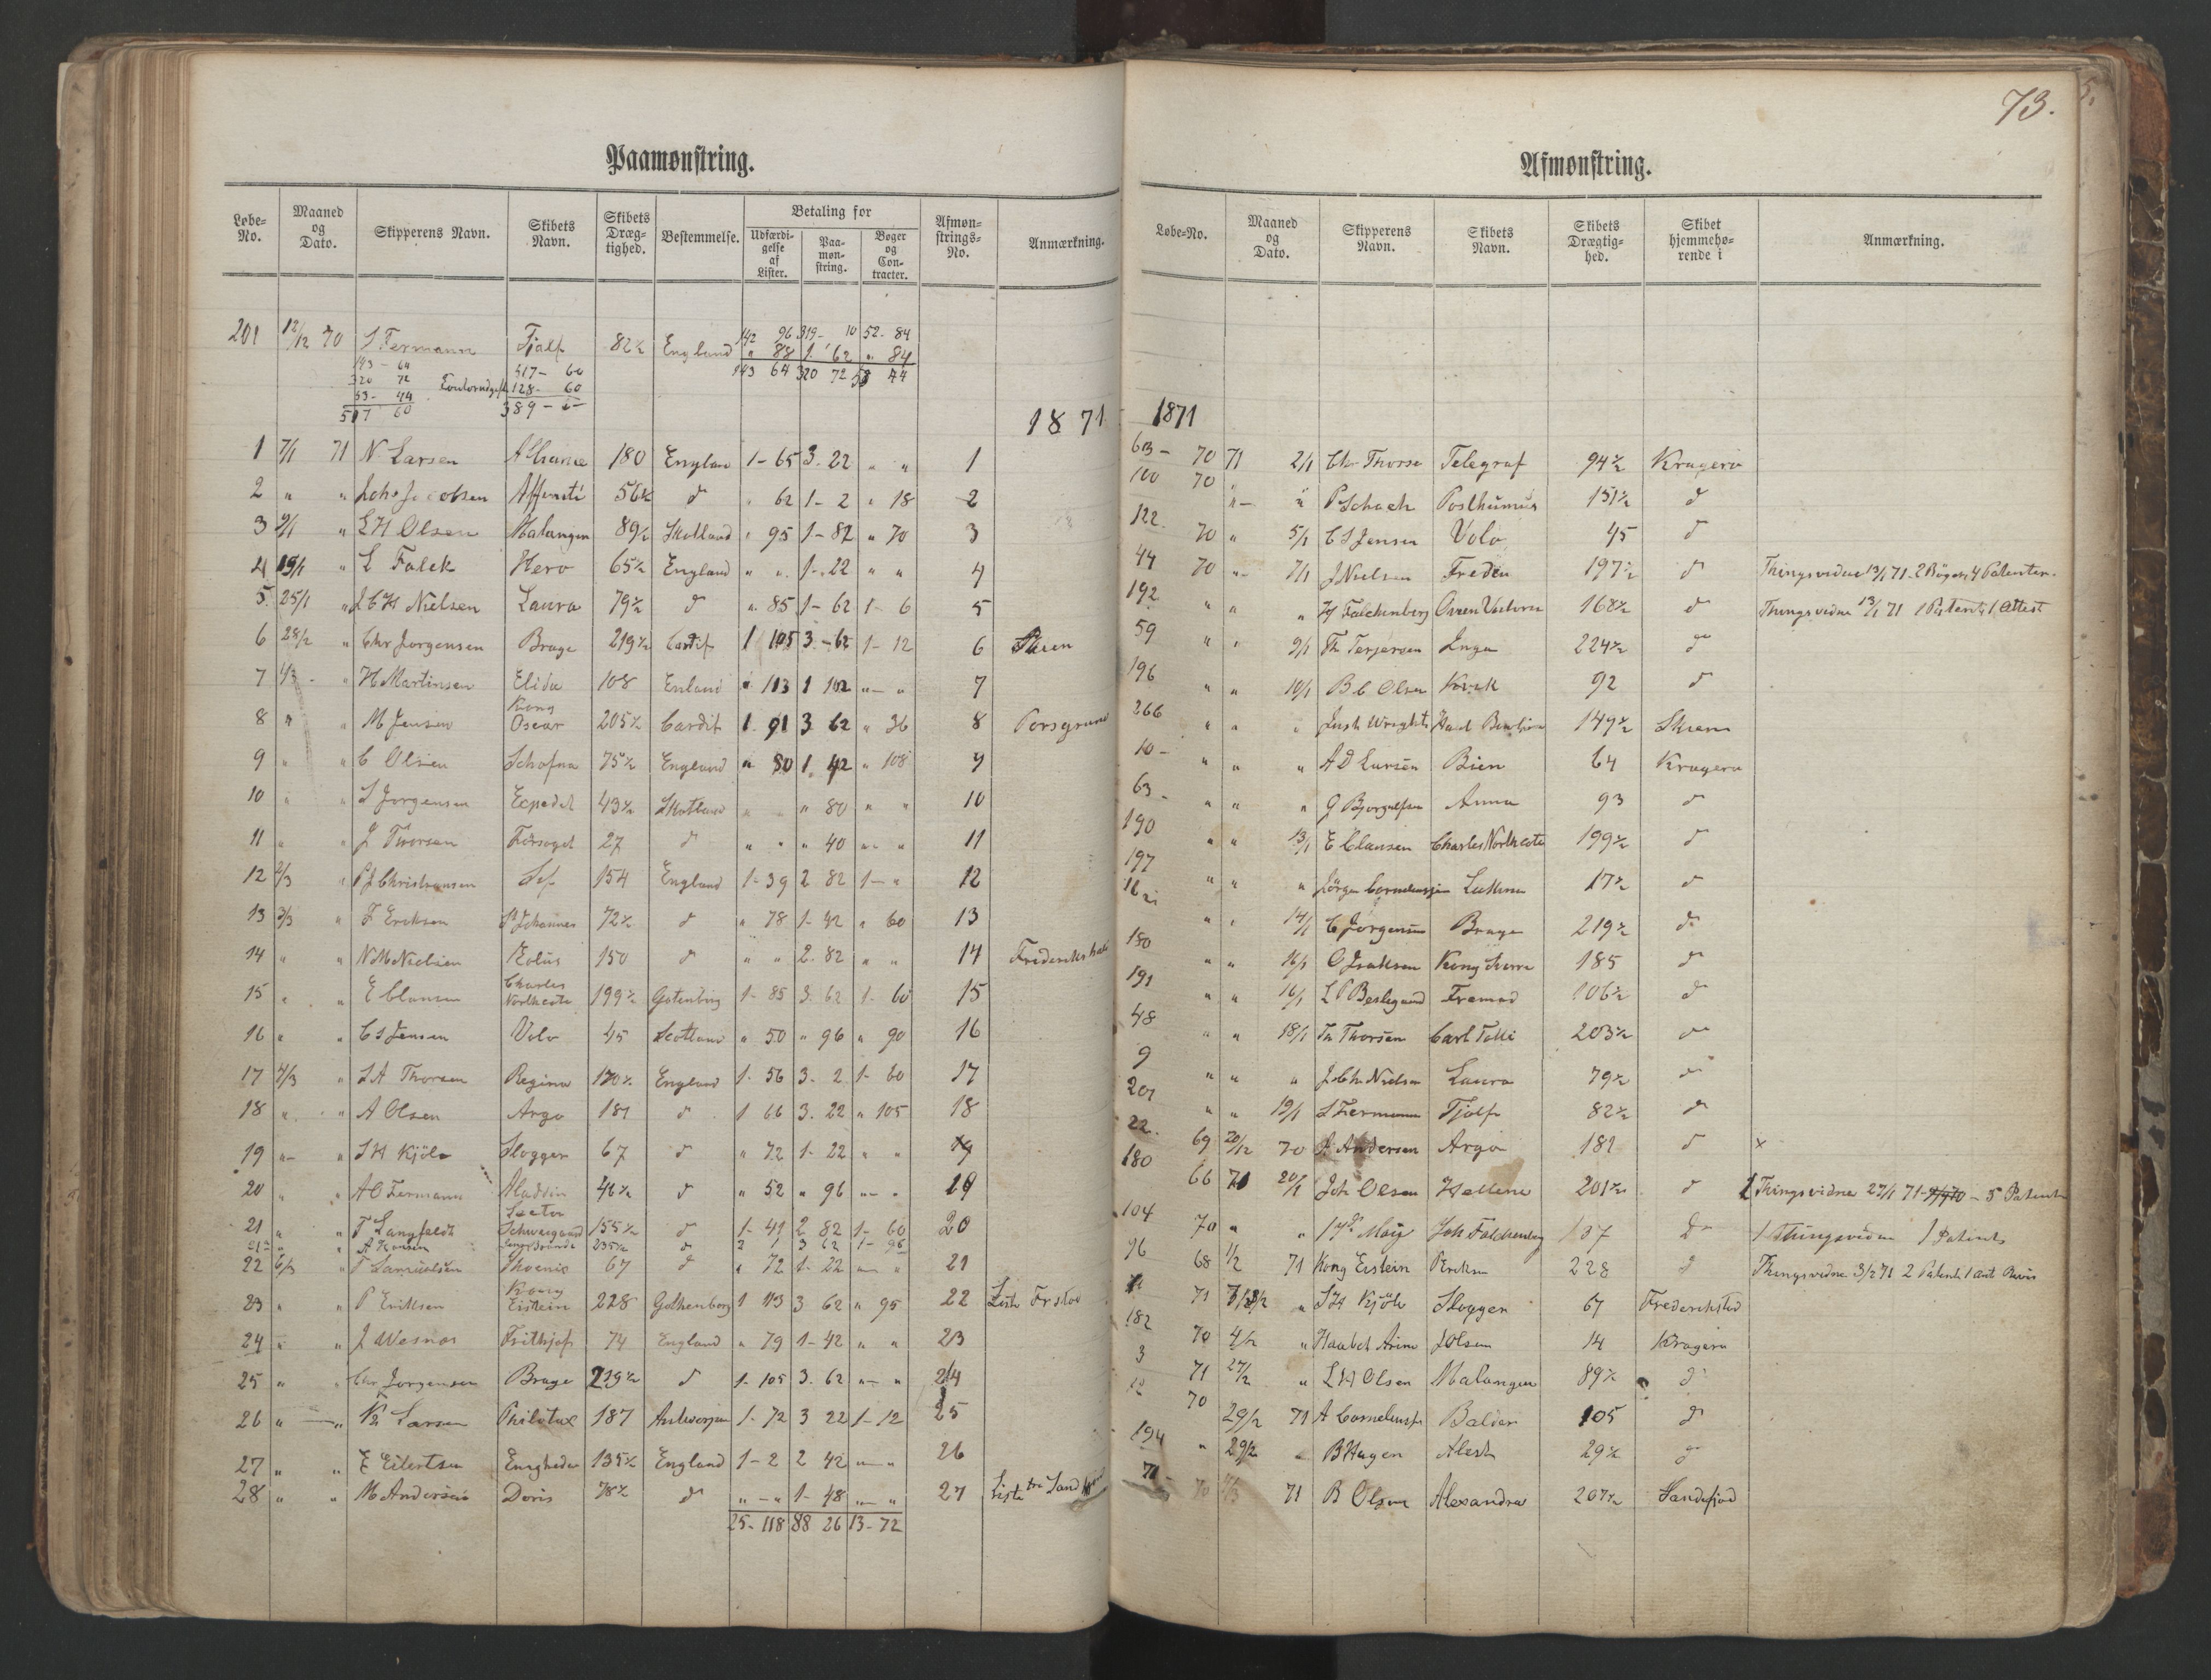 Paamønstring.
Løbe-No. | Maaned og Dato. | Skipperens Navn. | Skibets Navn. | Skibets Dræg-tighed. | Bestemmelse. | Betaling for | Udfærdi-gelse af Lister. | Paa-møn-string. | Bøger og Con-tracter. | Afmøn-strings-No. | Anmærkning.
201 12/12 70 S Fermann Tjalf 82½ England 142 96 319- 10 52- 84
" 88 1- 62 " 84
143 64 320 72 53 44
143 - 64 517- 60
320 72 128- 60
53- 44 389 -
517 60
1871
1 7/1 71 N Larsen Alliance 180 England 1-65 3. 22 " " 1
2 " " Johs Jacobsen 56½ d " 62 1- 2 " 18 2
3 9/1 " L H Olsen Malangen 89½ Skotland " 95 1- 82 " 70 3
4 19/1 " L Falck Hero 65½ England " " 1- 22 " " 4
5 25/1 " J C H Nielsen Laura 79½ d " 85 1- 62 1- 6 5
6 28/2 " Chr Jorgensen Brage 219½ Cardif 1 105 3-62 1- 12 6 Skien
7 1/3 " H Martinsen Elida 108 Enland " 113 1 102 " " 7
8 " " M Jensen Kong Oscar 205½ Cardif 1. 91 3 62 " 36 8 Porsgrund
9 " " C Olsen Schofna 75½ England " 80 1. 42 " 108 9
10 " " S Jorgensen Expedit 43½ Skotland " " " 80 " " 10
11 " " J Thorsen Forsøget 27 d " " " 40 " " 11
12 2/3 " P J Christiansen Sef 154 England 1- 39 2 82 1- " 12
13 3/3 " F Eriksen St Johannes 72½ d " 78 1- 42 " 60 13
14 " " N M Nielsen Eolus 150 d " " 2. 82 " " 14 Frederikshald
15 " " E Clausen Charles Northcote 199½ Gotenborg 1- 85 3. 62 1- 60 15
16 " " C S Jensen Volo 45 Scotland " 50 " 96 " 90 16
17 4/3 " S A Thorsen Regina 170½ England 1- 56 3. 2 1- 60 17
18 " " A Olsen Argo 181 d 1 66 3. 22 " 105 18
19 " " S H Kjöle Slogger 67 d " 72 1- 22 " " 19
20 " " A O Fermann Aladdin 46½ d " 52 " 96 " " 19
21 " " T Langfeldt Schweigaard 155½ d 1- 41 2 82 1- 60 20
" " A Hansen 235½ d 2 1 3 62 1- 96
22 6/3 " T Samuelsen Phoenix 67 d " 72 1- 22 " " 21
23 " " P Eriksen Kong Eistein 228 Gothenborg 1 113 3 62 " 95 22 Liste Frstad
24 " " J Wesnes Frithjof 74 England " 79 1- 42 " " 23
25 " " Chr Jorgensen Brage 219½ d 1- 105 3. 62 " " 24
26 " " Larsen Philotax 187 Antwerpen 1- 72 3 22 1- 12 25
27 " " E Eilertsen Enigheden 135½ England 1- 2 2 42 " " 26
28 " " M Andersen Doris 78½ d " " 1- 48 " " 27 Liste fra
25- 118 88 26 13- 72
73.
Afmønstring.
Løbe-No. | Maaned og Dato. | Skipperens Navn. | Skibets Navn. | Skibets Drægtig-hed. | Skibet hjemmehø-rende i | Anmærkning.
1871
63 - 70 71 2/1 Chr Thorse Telegraf 94½ Kragerø
100 70 " " P Schach Posthumus 151½ d
122. 70 " 5/1 C S Jensen Volo 45 d
44 70 " 7/1 J Nielsen Freden 197½ d Thingsvidne 13/1 71. 2 Bøger, 4 Patenter.
192 " " " H Falchenberg 168½ d Thingsvidne 13/1 71 1 Patent 1 Attest
59 " " 9/1 Th Terjesen Inga 224½ d
196 " " 10/1 B C Olsen 92 d
266 " " " Just Wright 149½ Skien
10 - " " " A D Larsen Bien 64 Kragerø
63 - " " " G Bjorgulfsen Anna 93 d
190 " " 13/1 E Clausen Charles Northcote 199½ d
197 " " " Jörgen Corneliussen 17½ d
" " 14/1 C Jörgensen Brage 219½ d
180 " " 16/1 O Isaksen Kong Sverre 185 d
191 " " 16/1 Framad 106½ d
48 " " 18/1 Th Thorsen Carl 203½ d
9 " " " J Chr Nielsen Laura 79½ d
201 " " 19/1 S Fermann Tjalf 82½ d
22. 69 20/12 70 Andersen Argo 181 d x
180 66 71 20/1 Joh Olsen Hellene 201½ d 1 Thingsvidne 27/1 71 - 5 Patent
104 70 " " 17de May Joh Falchenberg 137 d 1 Thingsvidne 1 Patent
96 68 1/2 71 Kong Eistein Eriksen 228 d Thingsvidne 3/2 71 2 Patent 1
71 " S H Kjöle Sloggen 67 Frederikstad
182 70 4/2 " Haabet Olsen 14 Kragerø
3 71 27/2 " L H Olsen Malangen 89½ d
12 70 29/2 71 A Corneliusen Balder 105 d
194 " 29/2 " B Hagen Alert 29½ d
71 - 70 71 B Olsen Alexandra 207½ Sandefjord